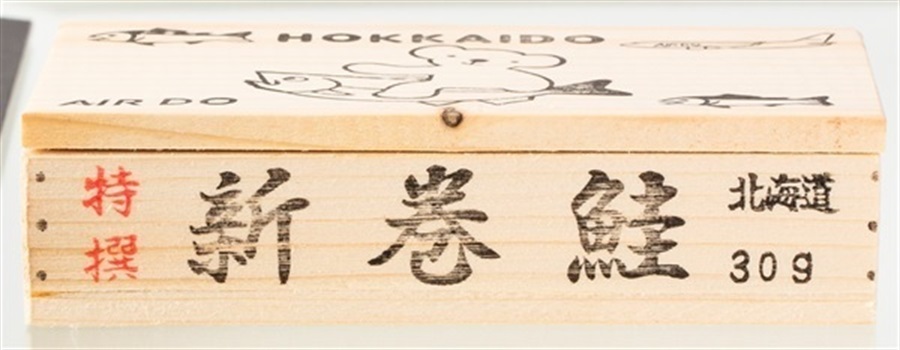 HOKKAIDO
AIR DO
AIR DO
特撰
新巻鮭
北海道
30g